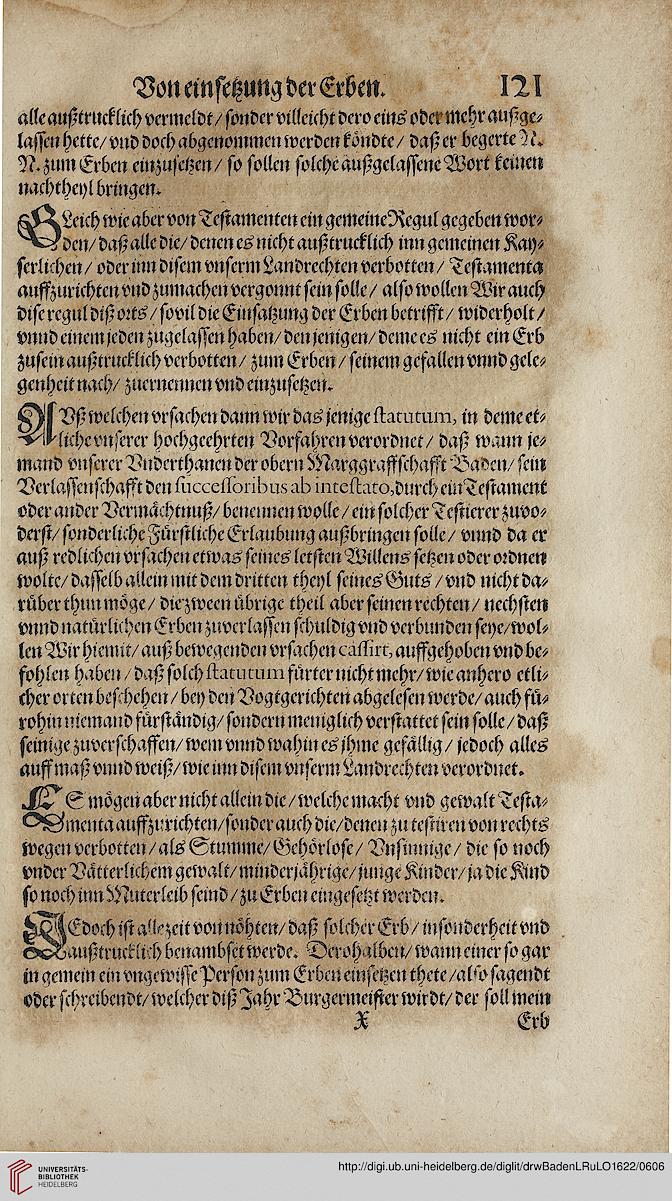 Von einsetzung der Erben. 121
alle außtrucklich vermeldt / sonder villeicht dero eins oder mehr außge-
lassen hette / vnd doch abgenommen werden köndte / daß er begerte N.
N. zum Erben einzusetzen / so sollen solche außgelassene Wort keinen
nachtheyl bringen.
GLeich wie aber von Testamenten ein gemeine Regul gegeben wor-
den / daß alle die / denen es nicht außtrucklich inn gemeinen Kay-
serlichen / oder inn disem vnserm Landrechten verbotten / Testamenta
auffzurichten vnd zumachen vergonnt sein solle / also wollen Wir auch
dise regul diß orts / sovil die Einsatzung der Erben betrifft / widerholt /
vnnd einem jeden zugelassen haben / den jenigen / deme es nicht ein Erb
zusein außtrucklich verbotten / zum Erben / seinem gefallen vnnd gele-
genheit nach / zuernennen vnd einzusetzen.
AVß welchen vrsachen dann wir das jenige statutum, in deme et-
liche vnserer hochgeehrten Vorfahren verordnet / daß wann je-
mand vnserer Vnderthanen der obern Marggraffschafft Baden / sein
Verlassenschafft den successoribus ab intestato, durch ein Testament
oder ander Vermächtnuß / benennen wolle / ein solcher Testierer zuvo-
derst / sonderliche Fürstliche Erlaubung außbringen solle / vnnd da er
auß redlichen vrsachen etwas seines letsten Willens setzen oder ordnen
wolte / dasselb allein mit dem dritten theyl seines Guts / vnd nicht da-
rüber thun möge / die zween übrige theil aber seinen rechten / nechsten
vnnd natürlichen Erben zuverlassen schuldig vnd verbunden seye / wol-
len Wir hiemit / auß bewegenden vrsachen cassirt, auffgehoben vnd be-
fohlen haben / daß solch statutum fürter nicht mehr / wie anhero etli-
cher orten beschehen / bey den Vogtgerichten abgelesen werde / auch fü-
rohin niemand fürständig / sondern meniglich verstattet sein solle / daß
seinige zuverschaffen / wem vnnd wahin es jhme gefällig / jedoch alles
auff maß vnnd weiß / wie inn disem vnserm Landrechten verordnet.
ES mögen aber nicht allein die / welche macht vnd gewalt Testa-
menta auffzurichten / sonder auch die / denen zu testiren von rechts
wegen verbotten / als Stumme / Gehörlose / Vnsinnige / die so noch
vnder Vätterlichem gewalt / minderjährige / junge Kinder / ja die Kind
so noch inn Muterleib seind / zu Erben eingesetzt werden.
JEdoch ist allezeit von nöhten / daß solcher Erb / insonderheit vnd
außtrucklich benambset werde. Derohalben / wann einer so gar
in gemein ein vngewisse Person zum Erben einsetzen thete / also sagendt
oder schreibendt / welcher diß Jahr Burgermeister wirdt / der soll mein
X Erb
UNIVERSITÄTS-
BIBLIOTHEK
HEIDELBERG
http://digi.ub.uni-heidelberg.de/diglit/drwBadenLRuLO1622/0606